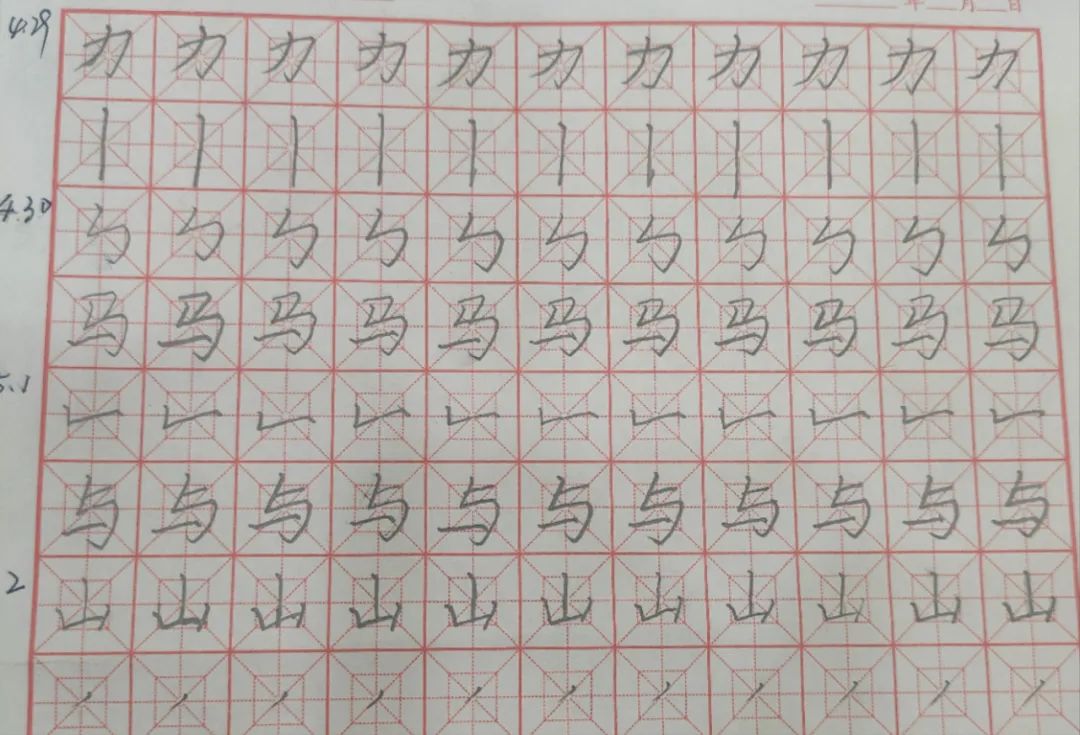 年 月 日
4.29 力 力 力 力 力 力 力 力 力 力 力
丨 丨 丨 丨 丨 丨 丨 丨 丨 丨 丨
4.30 ㄣ ㄣ ㄣ ㄣ ㄣ ㄣ ㄣ ㄣ ㄣ ㄣ ㄣ
马 马 马 马 马 马 马 马 马 马 马
5.1 ㇊ ㇊ ㇊ ㇊ ㇊ ㇊ ㇊ ㇊ ㇊ ㇊ ㇊
与 与 与 与 与 与 与 与 与 与 与
2 山 山 山 山 山 山 山 山 山 山 山
㇀ ㇀ ㇀ ㇀ ㇀ ㇀ ㇀ ㇀ ㇀ ㇀ ㇀